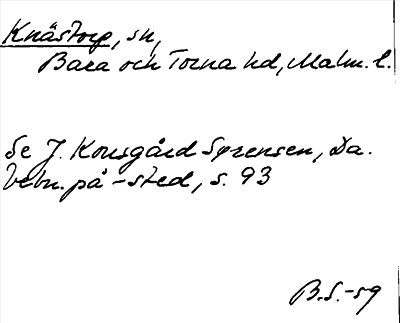 Knästorp, sn,
Bara och Torna hd, Malm. l.
Se J. Kousgård Sørensen, Da.
Vebn. på -sted, s. 93
B.S.-59